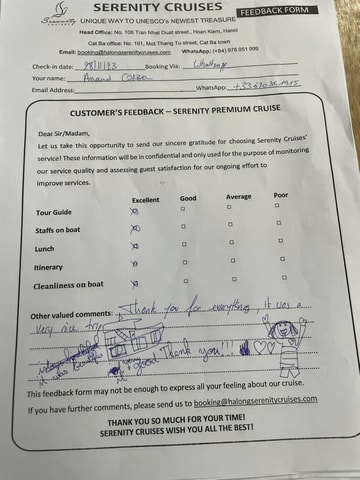 Serenity
SERENITY CRUISES
FEEDBACK FORM
UNIQUE WAY TO UNESCO'S NEWEST TREASURE
Head Office: No. 106 Tran Nhat Duat street., Hoan Kiem, Hanoi
Cat Ba office: No. 191, Mot Thang Tu street, Cat Ba town
Email: booking@halongserenitycruises.com WhatsApp: (+84) 978 951 999
Check-in date: Booking Via:
Your name:
Email Address: WhatsApp:
CUSTOMER'S FEEDBACK – SERENITY PREMIUM CRUISE
Dear Sir/Madam,
Let us take this opportunity to send our sincere gratitude for choosing Serenity Cruises'
service! These information will be in confidential and only used for the purpose of monitoring
our service quality and assessing guest satisfaction for our ongoing effort to
improve services.
Excellent Good Average Poor
Tour Guide
Staffs on boat
Lunch
Itinerary
Cleanliness on boat
Other valued comments: Thank you for everything, it was a
very nice trip
good Thank you!!!
This feedback form may not be enough to express all your feeling about our cruise.
If you have further comments, please send us to booking@halongserenitycruises.com
THANK YOU SO MUCH FOR YOUR TIME!
SERENITY CRUISES WISH YOU ALL THE BEST!